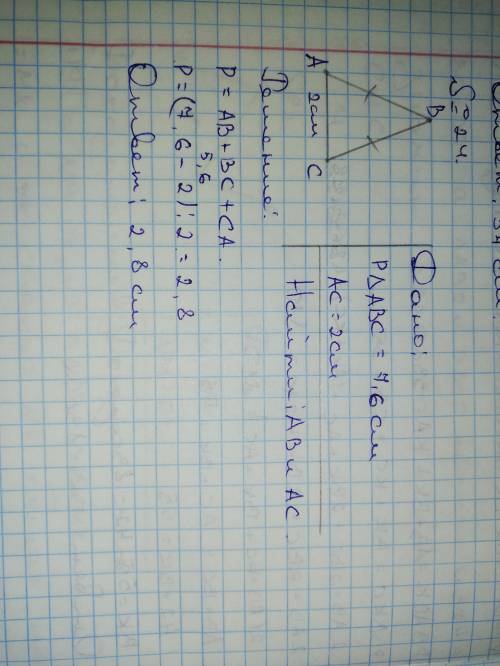 Ответ: 34 см.
№ 24.
B
A 2см C
Дано:
P△ABC = 7,6 см
AC = 2см
Найти: AB и AC.
Решение:
P = AB + BC + CA.
5,6
P = (7,6 - 2) : 2 = 2,8
Ответ: 2,8 см